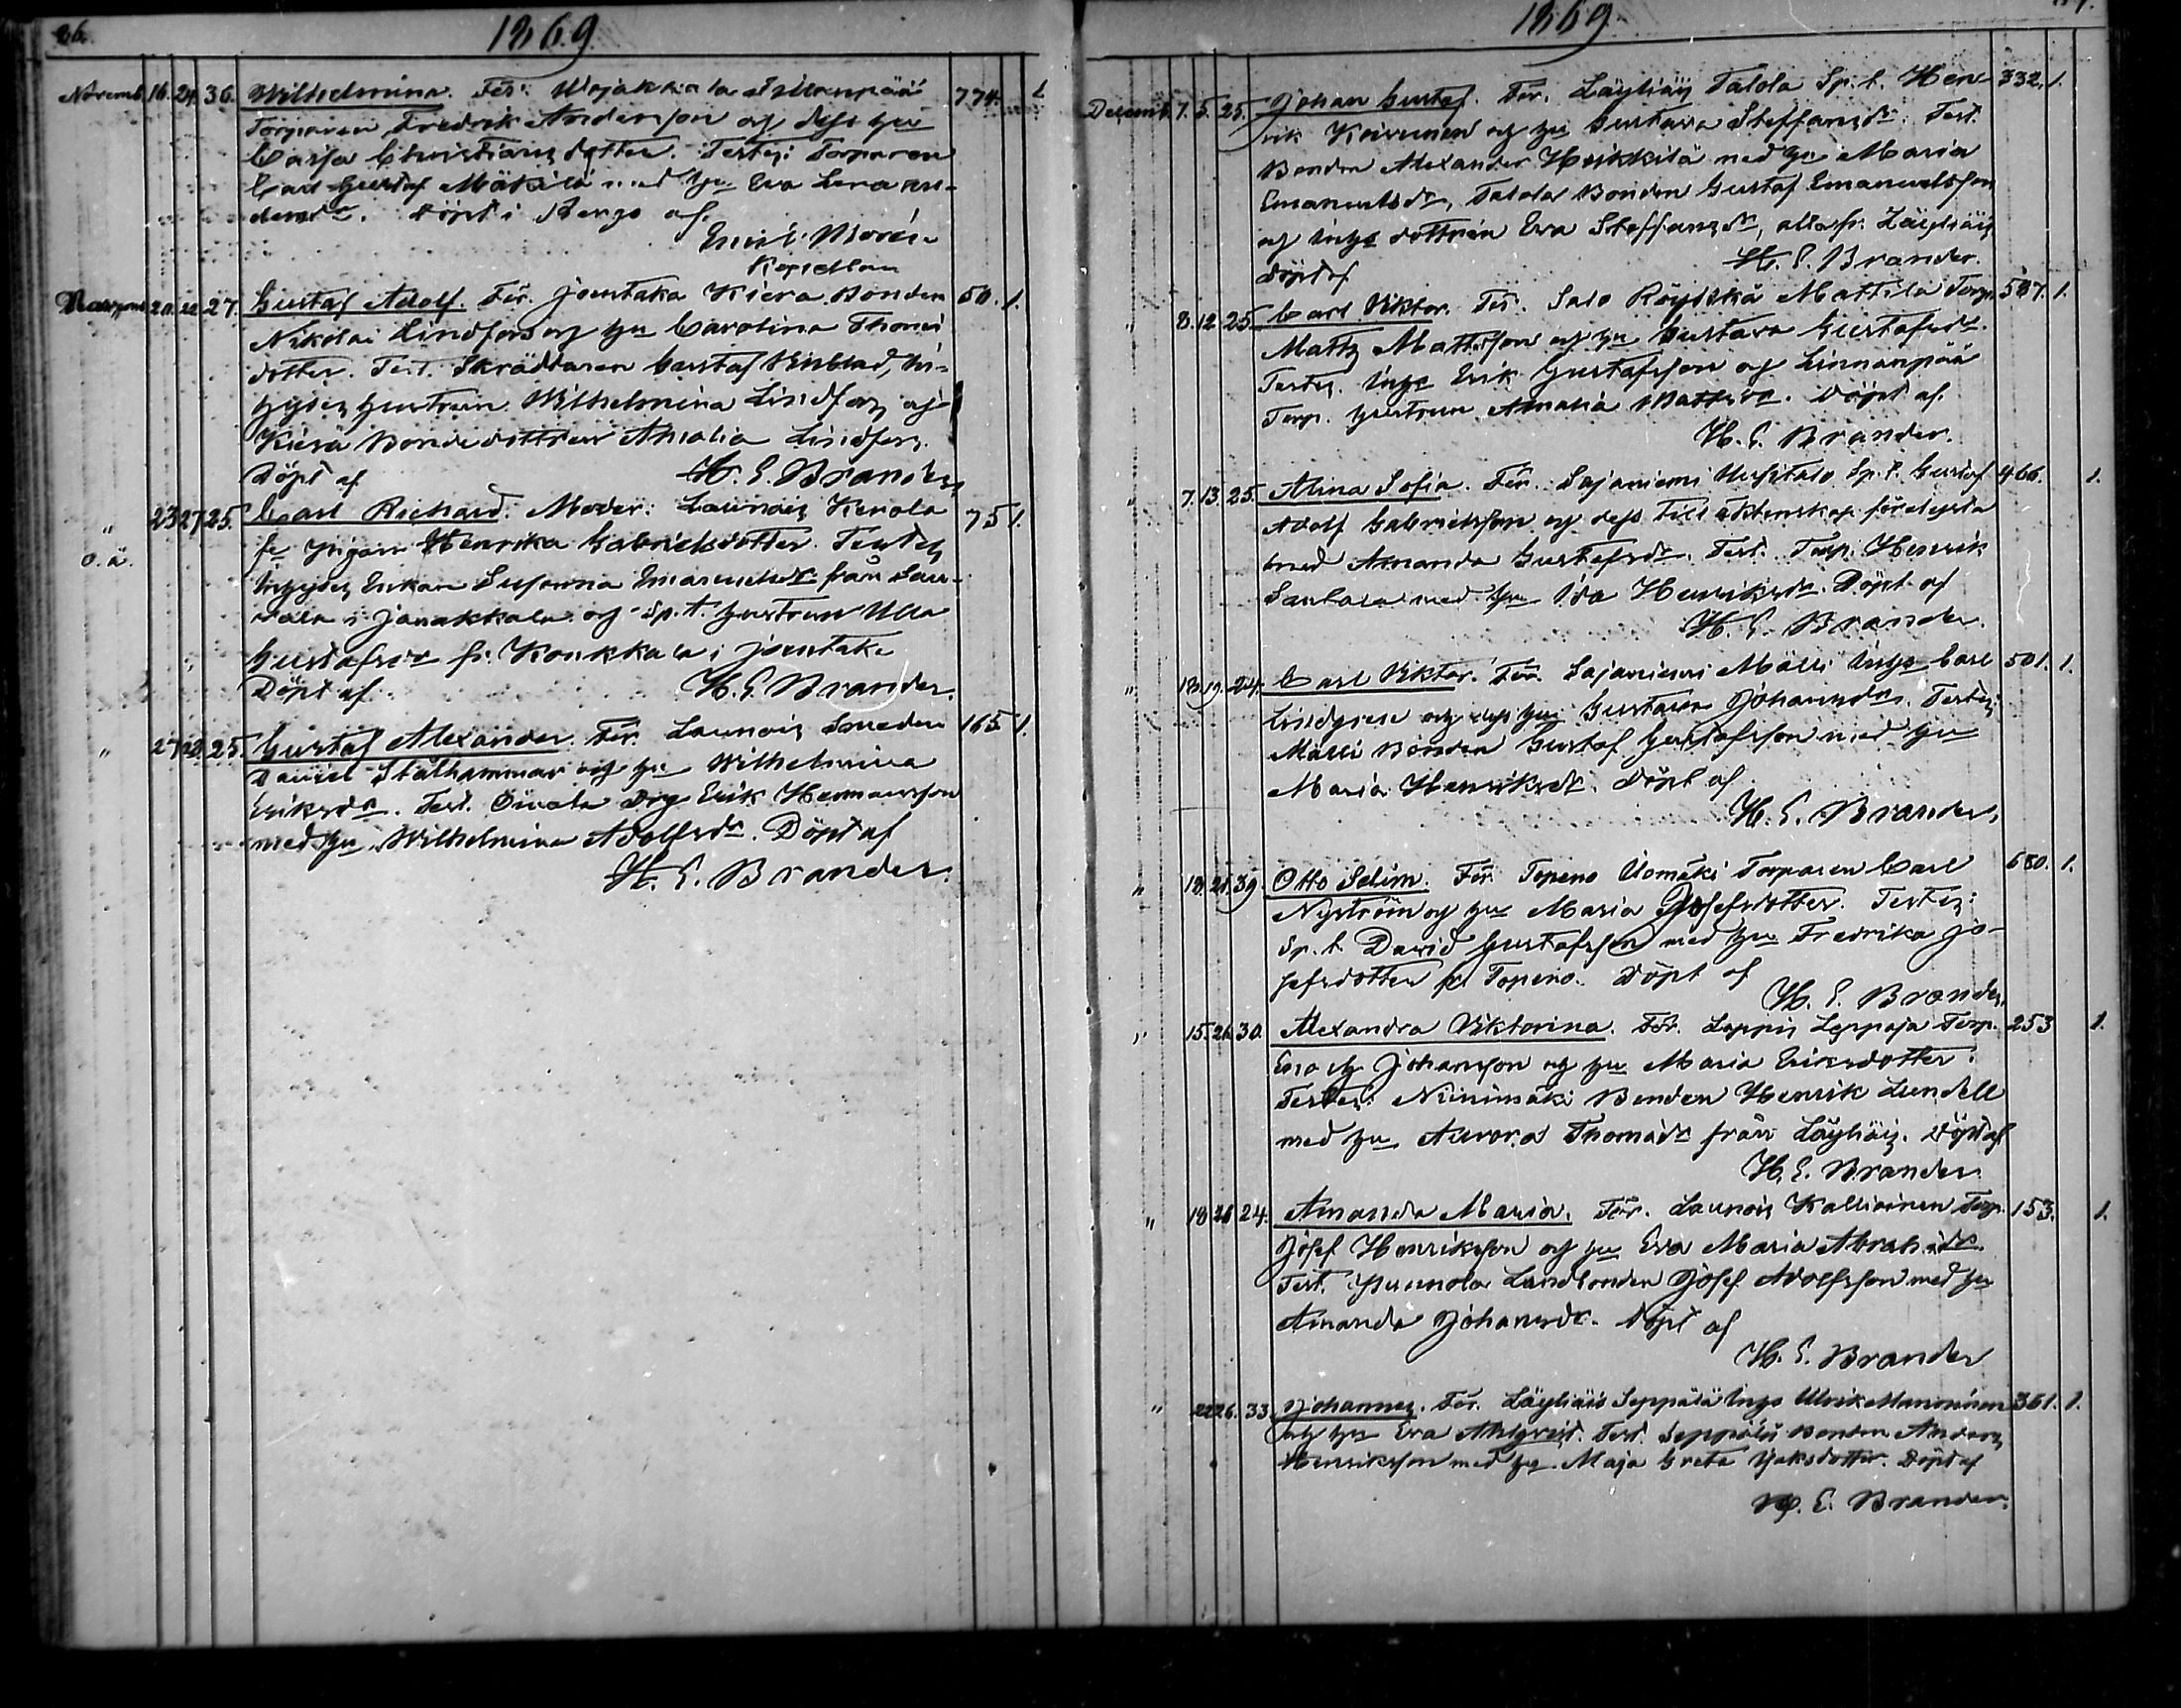 26.
1869
Novemb. 16. 24. 36. Wilhelmina. För: Wojakkala Sillanpää 774. 1
Torparen Fredrik Andersson og dess hu
Carsa Christiansdotter. Testes: Torparen
Carl Gustaf Mäkilä med hu Eva Lena An-
dersdr. döpt i Rengo af
Emil Morén
Kapellan
20. 22. 27. Gustaf Adolf. För. Jountaka Kiera Bonden 50. 1.
Nikolai Lindfors og hu Carolina Thomæ
dotter. Test. Skräddaren Gustaf Winblad, In-
hyses hustrun Wilhelmina Lindfors og
Kiera Bondedottren Amalia Lindfors.
Döpt af H. E. Brander
" 23 27 25. Carl Richard. Moder: Launois Kerola 75 1.
o. ä. pigan Henrika Gabrielsdotter. Testes
Inhyses Enkan Susanna Emanuelsdr från
i Janakkala og Sp. t. hustrun Ulla
Gustafsdr fr. Konkkala i Jountaka
Döpt af H. E. Brander.
" 27 28 25. Gustaf Alexander. För. Launois Smeden 165 1.
Daniel Stålhammar og hu Wilhelmina
Eriksdr. Test. Drg Erik Hermansson
med hu Wilhelmina Adolfsdr. Döpt af
H. E. Brander.
1869
Decemb. 1. 5. 25. Johan Gustaf. För. Läyliäis Talola Sp. t. Hen- 332. 1.
rik Koivunen og hu Gustava Steffansdr. Test.
Bonden Alexander Heikkilä med hu Maria
Emanuelsdr, Talola Bonden Gustaf Emanuelsson
og Inhys dottren Eva Steffansdr, alla fr. Läyliäis
döpt af H. E. Brander.
" 8. 12. 25. Carl Viktor. För. Salo Röyskä Mattila Torp. 587. 1.
Matts Mattsson og hu Gustava Gustafsdr.
Testes. Inhys Erik Gustafsson og Linnanpää
Torp. hustrun Amalia Mattsdr. döpt af
H. E. Brander.
" 7. 13. 25. Alina Sofia. För. Sajaniemi Uusitalo Sp. t. Gustaf 466. 1.
Adolf Gabrielsson og dess till äktenskap förelysta
med Amanda Gustafsdr. Test. Torp. Henrik
Santala med hu Ida Henriksdr. Döpt af
H. E. Brander.
" 13. 19. 24. Carl Viktor. För. Sajaniemi Mälli Inhys Carl 501. 1.
Lindgren og dess hu Gustava Johansdr. Testes
Mälli Bonden Gustaf Gustafsson med hu
Maria Henriksdr. döpt af
H. E. Brander.
" 18. 21. 39. Otto Selim. För. Topeno Uomäki Torparen Carl 680. 1.
Nyström og hu Maria Josefsdotter. Testes:
Sp. t. David Gustafsson med hu Fredrika Jo-
sefsdotter fr. Topeno. döpt af
H. E. Brander.
" 15. 26. 30. Alexandra Viktorina. För. Loppis Leppoja Torp. 253 1.
Johansson og hu Maria Eriksdotter.
Testes: Niinimäki Bonden Henrik Lundell
med hu Aurora Thomædr från Läyliäis. Döpt af
H. E. Brander
" 18 26 24. Amanda Maria. För. Launois Kallioinen Torp. 153. 1.
Josef Henriksson og hu Eva Maria Abrah.dr.
Test. Punnola Landbonden Josef Adolfsson med hu
Amanda Johansdr. Döpt af
H. E. Brander
" 22 26. 33. Johannes. För. Läyliäis Seppälä Inhys Ulrik Manninen 361. 1.
og hu Eva Ahlqvist. Test. Seppälä Bonden Anders
Henriksson med hu Maja Greta Isaksdotter. Döpt af
H. E. Brander.